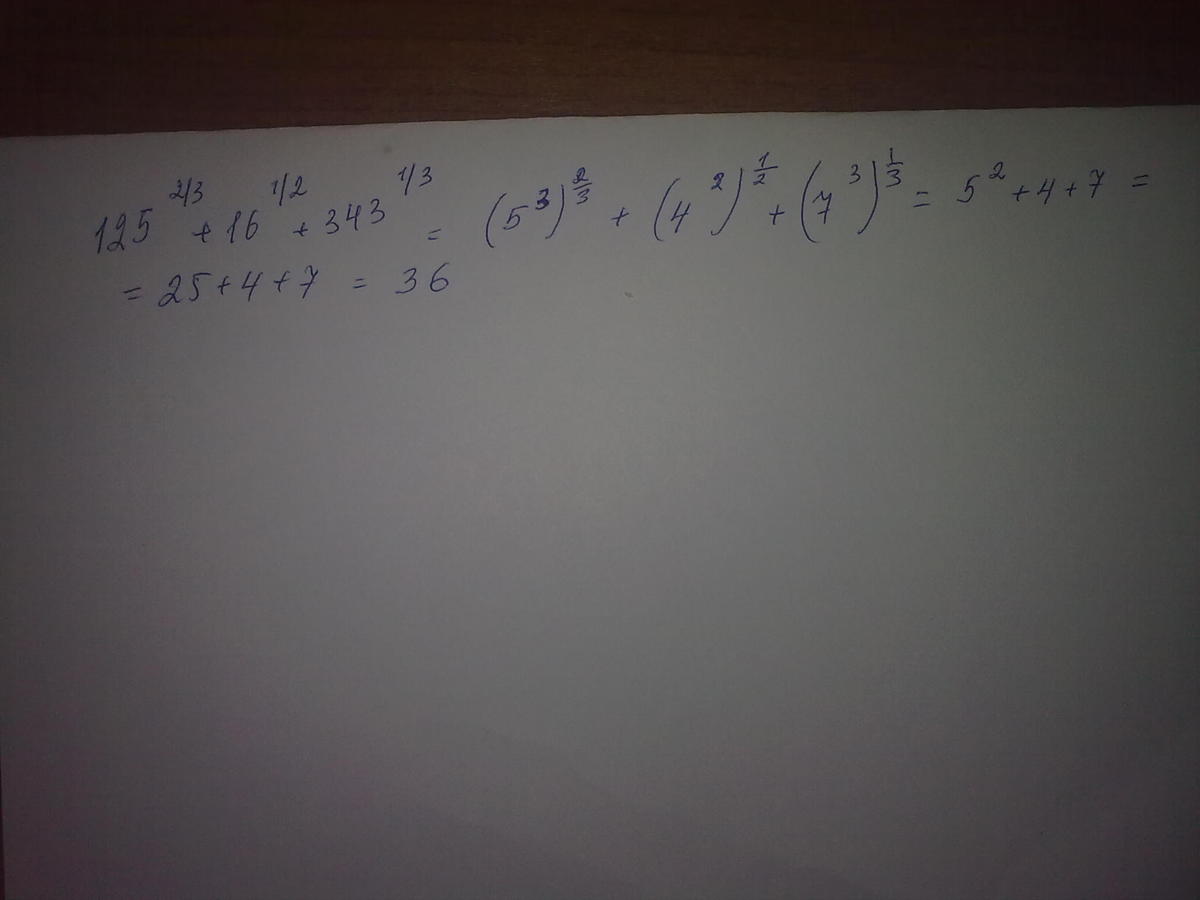 125^{2/3} + 16^{1/2} + 343^{1/3} = (5^3)^{\frac{2}{3}} + (4^2)^{\frac{1}{2}} + (7^3)^{\frac{1}{3}} = 5^2 + 4 + 7 =
= 25 + 4 + 7 = 36